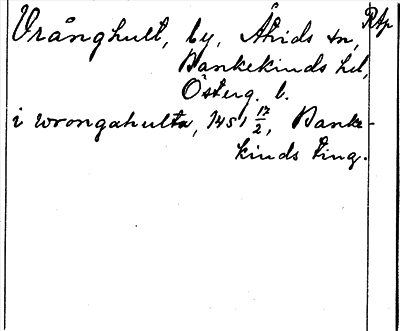 Vrånghult, by, Åtvids sn, Rtp
Bankekinds hd,
Österg. l.
i wrongahulta, 1451 17/2, Banke-
kinds ting.